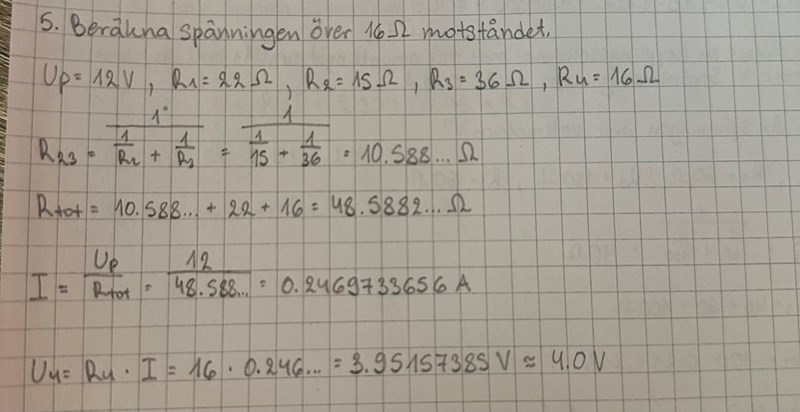 5. Beräkna spänningen över 16Ω motståndet.
Up = 12V, R1 = 22Ω, R2 = 15Ω, R3 = 36Ω, R4 = 16Ω
R23 = 1 / (1/R2 + 1/R3) = 1 / (1/15 + 1/36) = 10.588... Ω
Rtot = 10.588... + 22 + 16 = 48.5882... Ω
I = Up / Rtot = 12 / 48.588... = 0.2469733656 A
U4 = R4 · I = 16 · 0.246... = 3.95157385 V ≈ 4.0 V